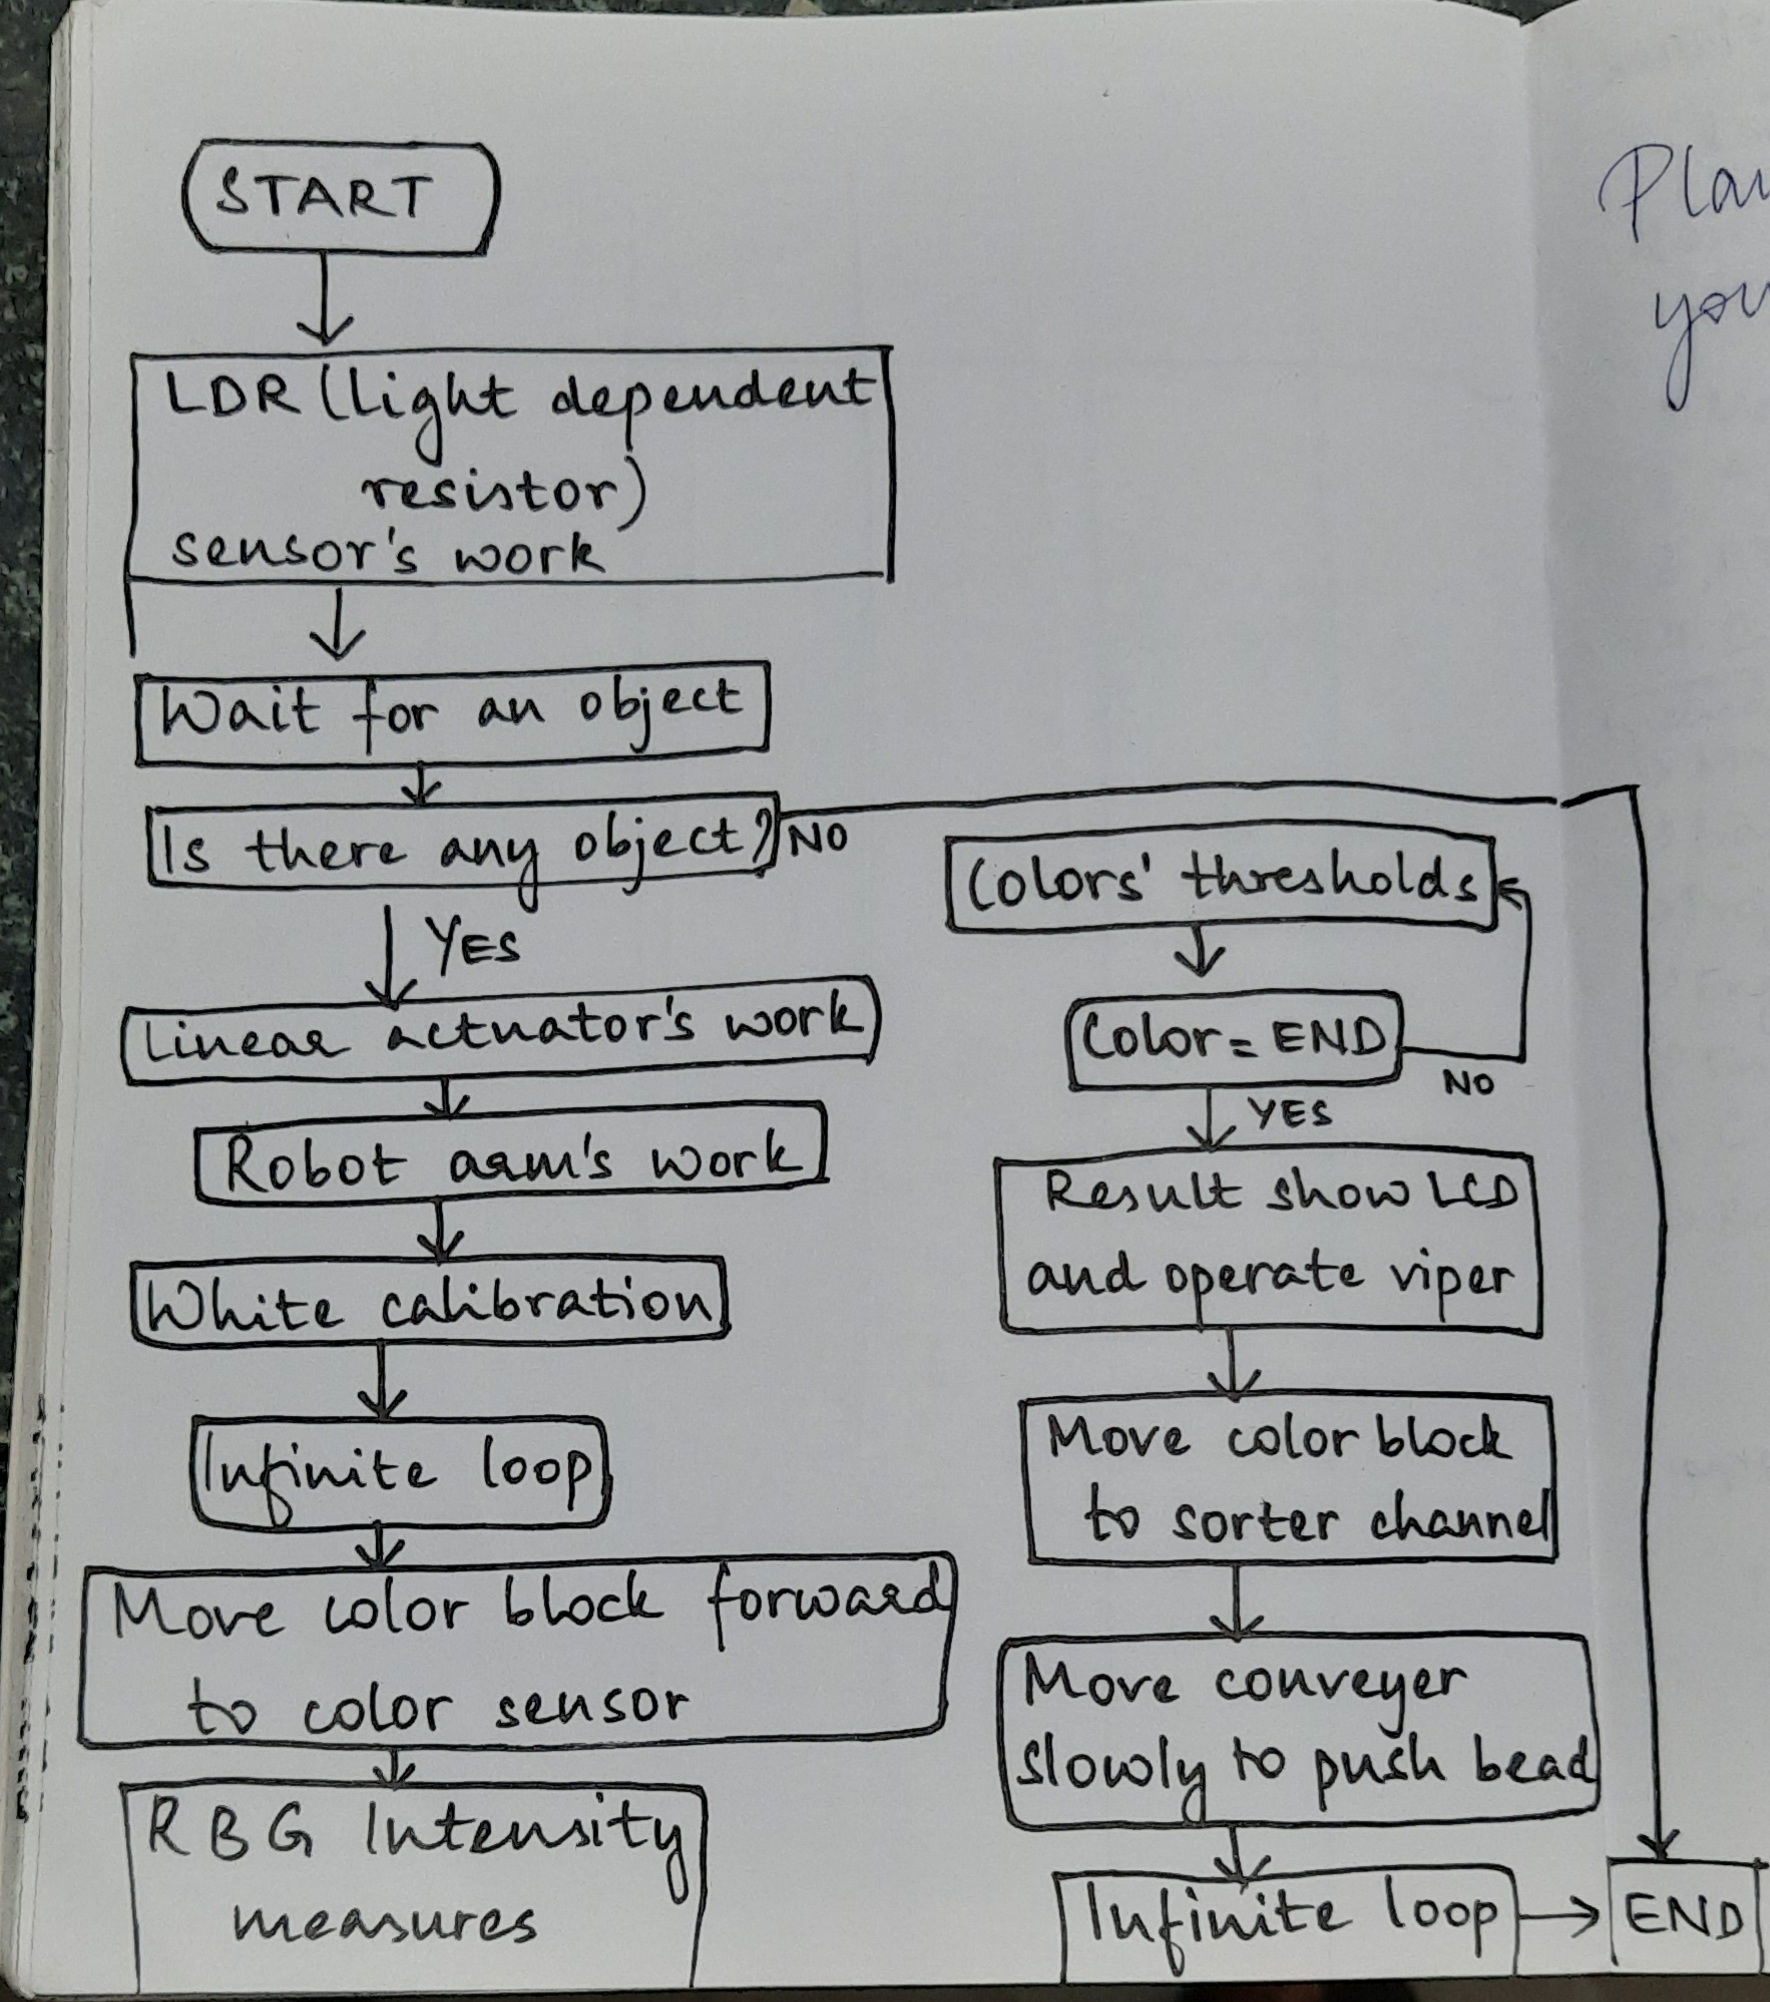 START
LDR (Light dependent
resistor)
sensor's work
Wait for an object
Is there any object?
NO
YES
Linear actuator's work
Robot arm's work
White calibration
Infinite loop
Move color block forward
to color sensor
RBG Intensity
measures
Colors' thresholds
Color = END
NO
YES
Result show LCD
and operate viper
Move color block
to sorter channel
Move conveyer
slowly to push bead
Infinite loop
END